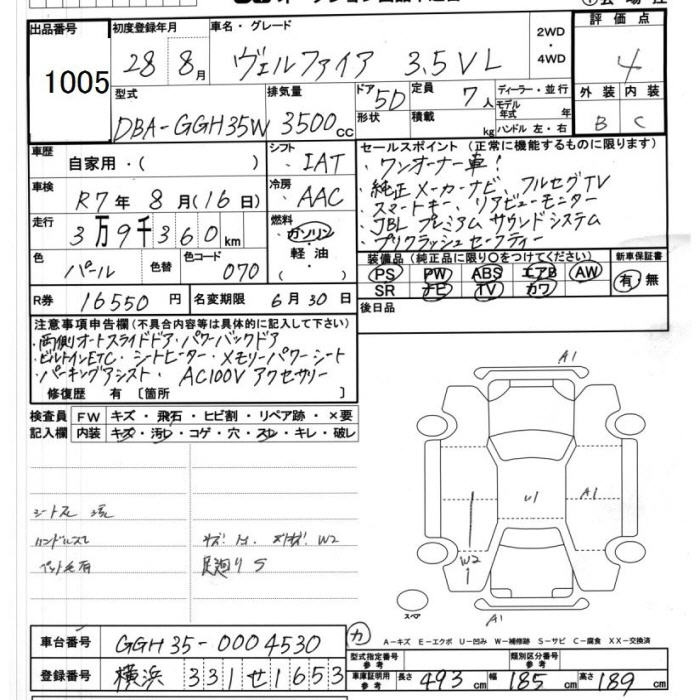 出品番号
1005
初度登録年月
28年 8月
車名・グレード
ヴェルファイア 3.5 VL
2WD
・
4WD
評価点
4
外装 内装
B C
型式
DBA-GGH35W
排気量
3500cc
ドア
5D
形状
定員
7人
積載
kg
ディーラー・並行
モデル年式 年
ハンドル 左・右
車歴
自家用・( )
シフト
IAT
車検
R7年 8月(16日)
冷房
AAC
走行
3万9千360km
燃料
ガソリン
・
軽油
・( )
色
パール
色替
色コード
070
R券
16550円
名変期限
6月30日
セールスポイント (正常に機能するものに限ります)
・ワンオーナー車!
・純正メーカーナビ、フルセグTV
・スマートキー、リアビューモニター
・JBL プレミアムサウンドシステム
・プリクラッシュセーフティー
装備品(純正品に限り〇をつけてください)
新車保証書
PS PW ABS エアB AW
有・無
SR ナビ TV カワ
後日品
注意事項申告欄(不具合内容等は具体的に記入して下さい)
・両側オートスライドドア・パワーバックドア
・ビルトインETC・シートヒーター・メモリーパワーシート
・パーキングアシスト・AC100V アクセサリー
修復歴 有 〔箇所 〕
検査員記入欄
FW キズ・飛石・ヒビ割・リペア跡・×要
内装 キズ・汚レ・コゲ・穴・スレ・キレ・破レ
シートスレ 汚レ
ハンドルスレ
ペット毛有
W2
足廻りS
A1
U1
A1
W2
スペア
A1
車台番号
GGH35-0004530
カ
A-キズ E-エクボ U-凹み W-補修跡 S-サビ C-腐食 XX-交換済
型式指定番号
参考
類別区分番号
参考
登録番号
横浜 331 せ 1653
車庫証明用
参考
長さ 493cm 幅 185cm 高さ 189cm